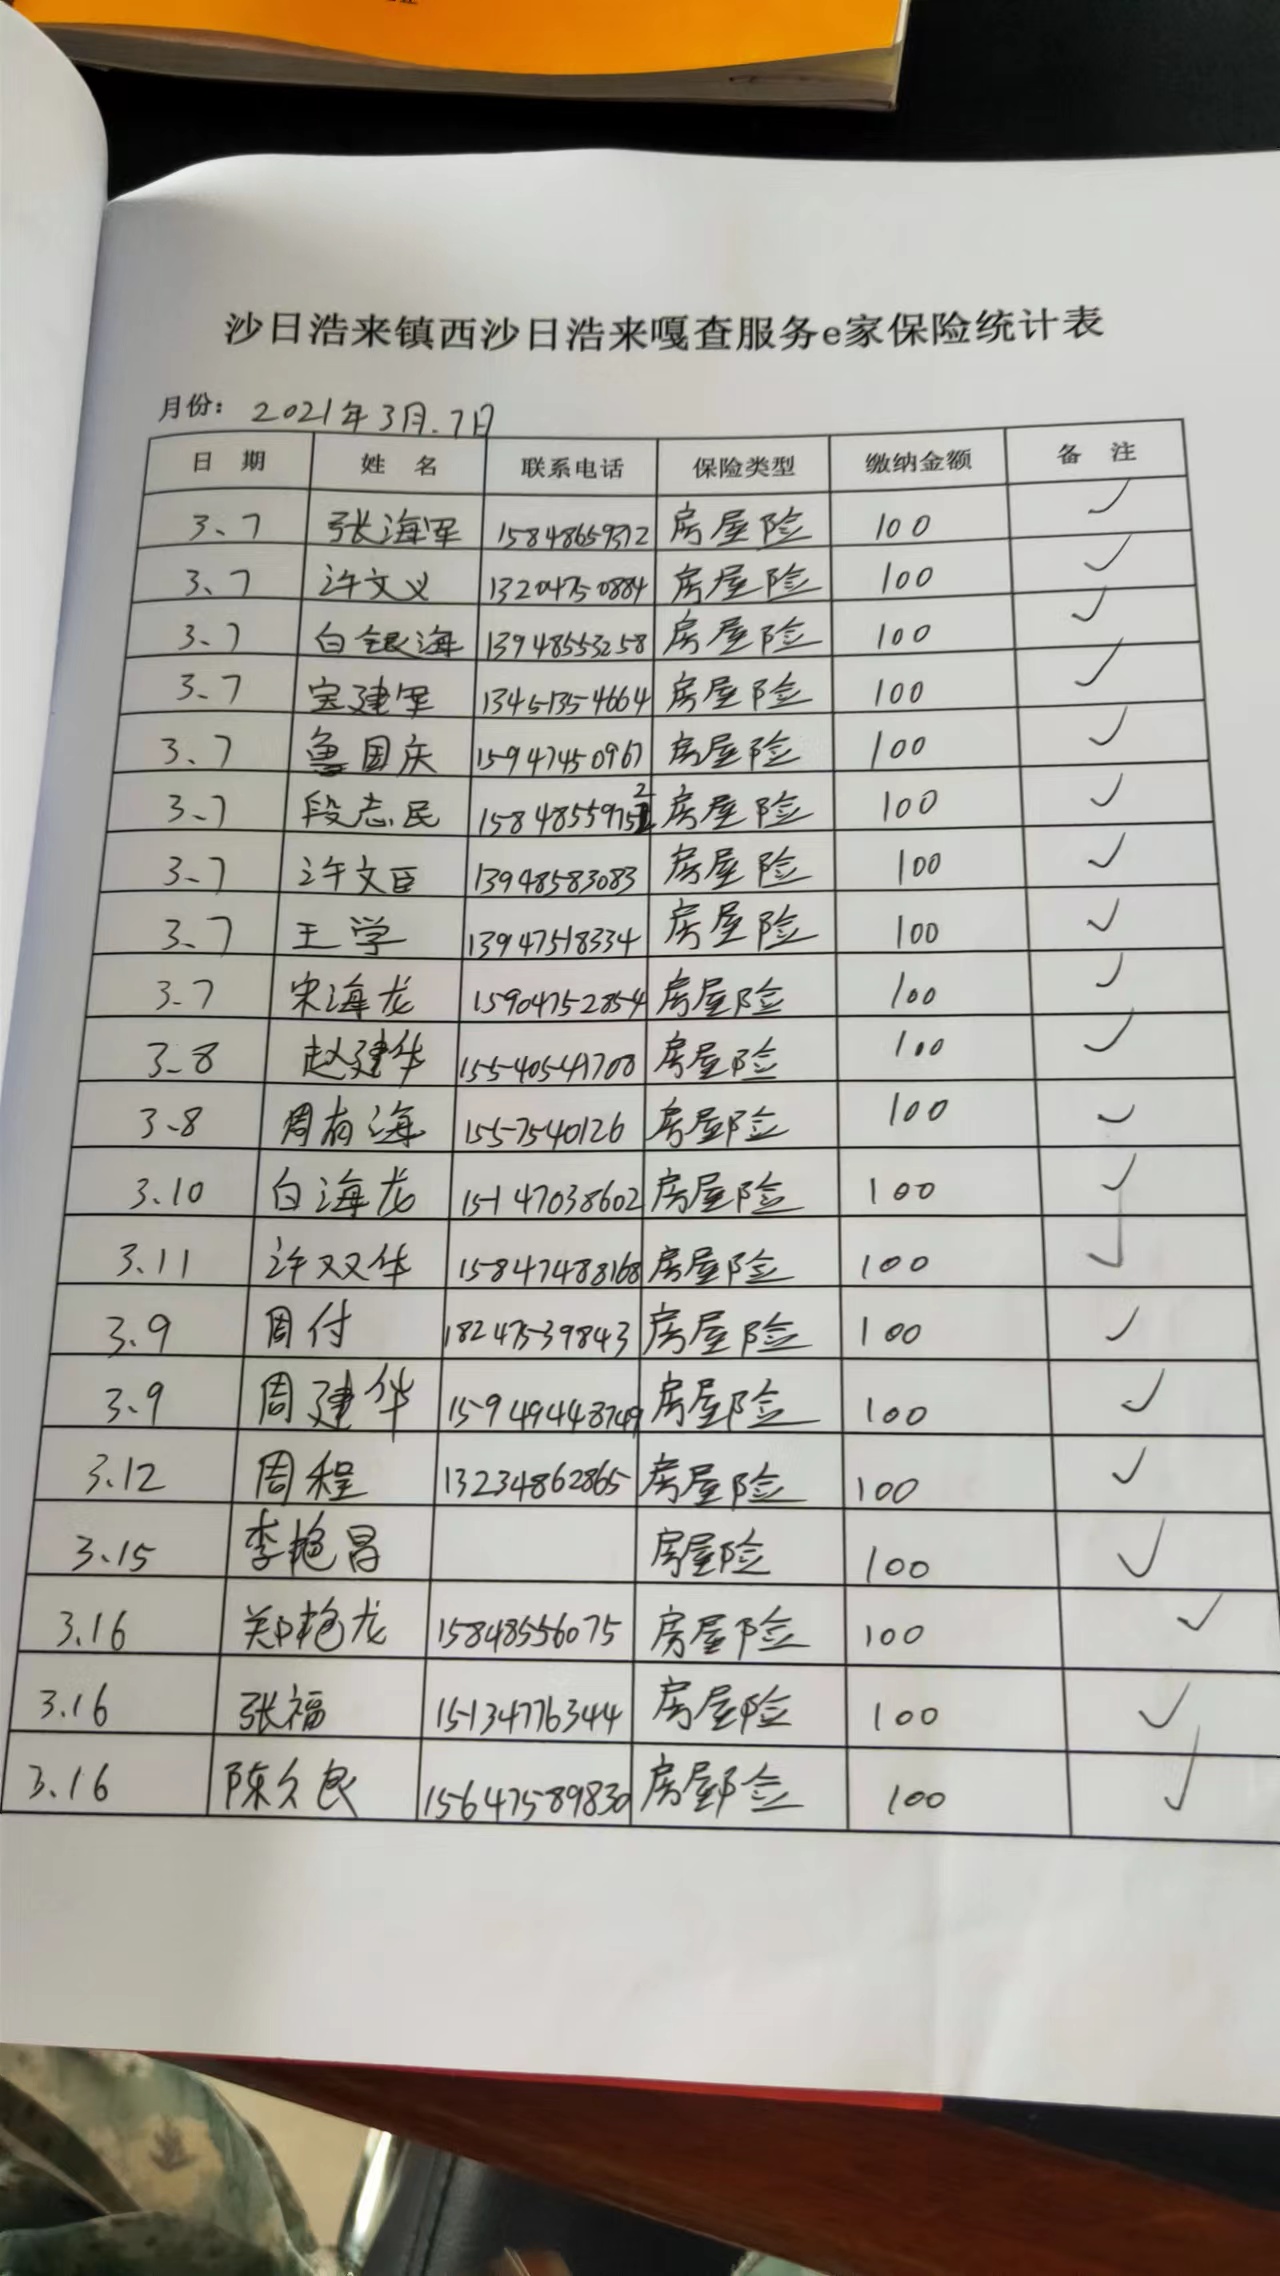 沙日浩来镇西沙日浩来嘎查服务e家保险统计表
月份： 2021年3月.7日
日 期 姓 名 联系电话 保险类型 缴纳金额 备 注
3.7 张海军 15848659372 房屋险 100 ✓
3.7 许文义 13204750884 房屋险 100 ✓
3.7 白银海 13948553258 房屋险 100 ✓
3.7 宝建军 13451354664 房屋险 100 ✓
3.7 鲁国庆 15947450967 房屋险 100 ✓
3.7 段志民 15848559752 房屋险 100 ✓
3.7 许文臣 13948583083 房屋险 100 ✓
3.7 王学 13947518334 房屋险 100 ✓
3.7 宋海龙 15904752854 房屋险 100 ✓
3.8 赵建华 15540541708 房屋险 100 ✓
3.8 周有海 1557540126 房屋险 100 ✓
3.10 白海龙 15147038602 房屋险 100 ✓
3.11 许双华 15847488168 房屋险 100 ✓
3.9 周付 18247539843 房屋险 100 ✓
3.9 周建华 15949448749 房屋险 100 ✓
3.12 周程 13234862865 房屋险 100 ✓
3.15 李艳昌 房屋险 100 ✓
3.16 郑艳龙 15848556075 房屋险 100 ✓
3.16 张福 15134776344 房屋险 100 ✓
3.16 陈久民 15647589830 房屋险 100 ✓